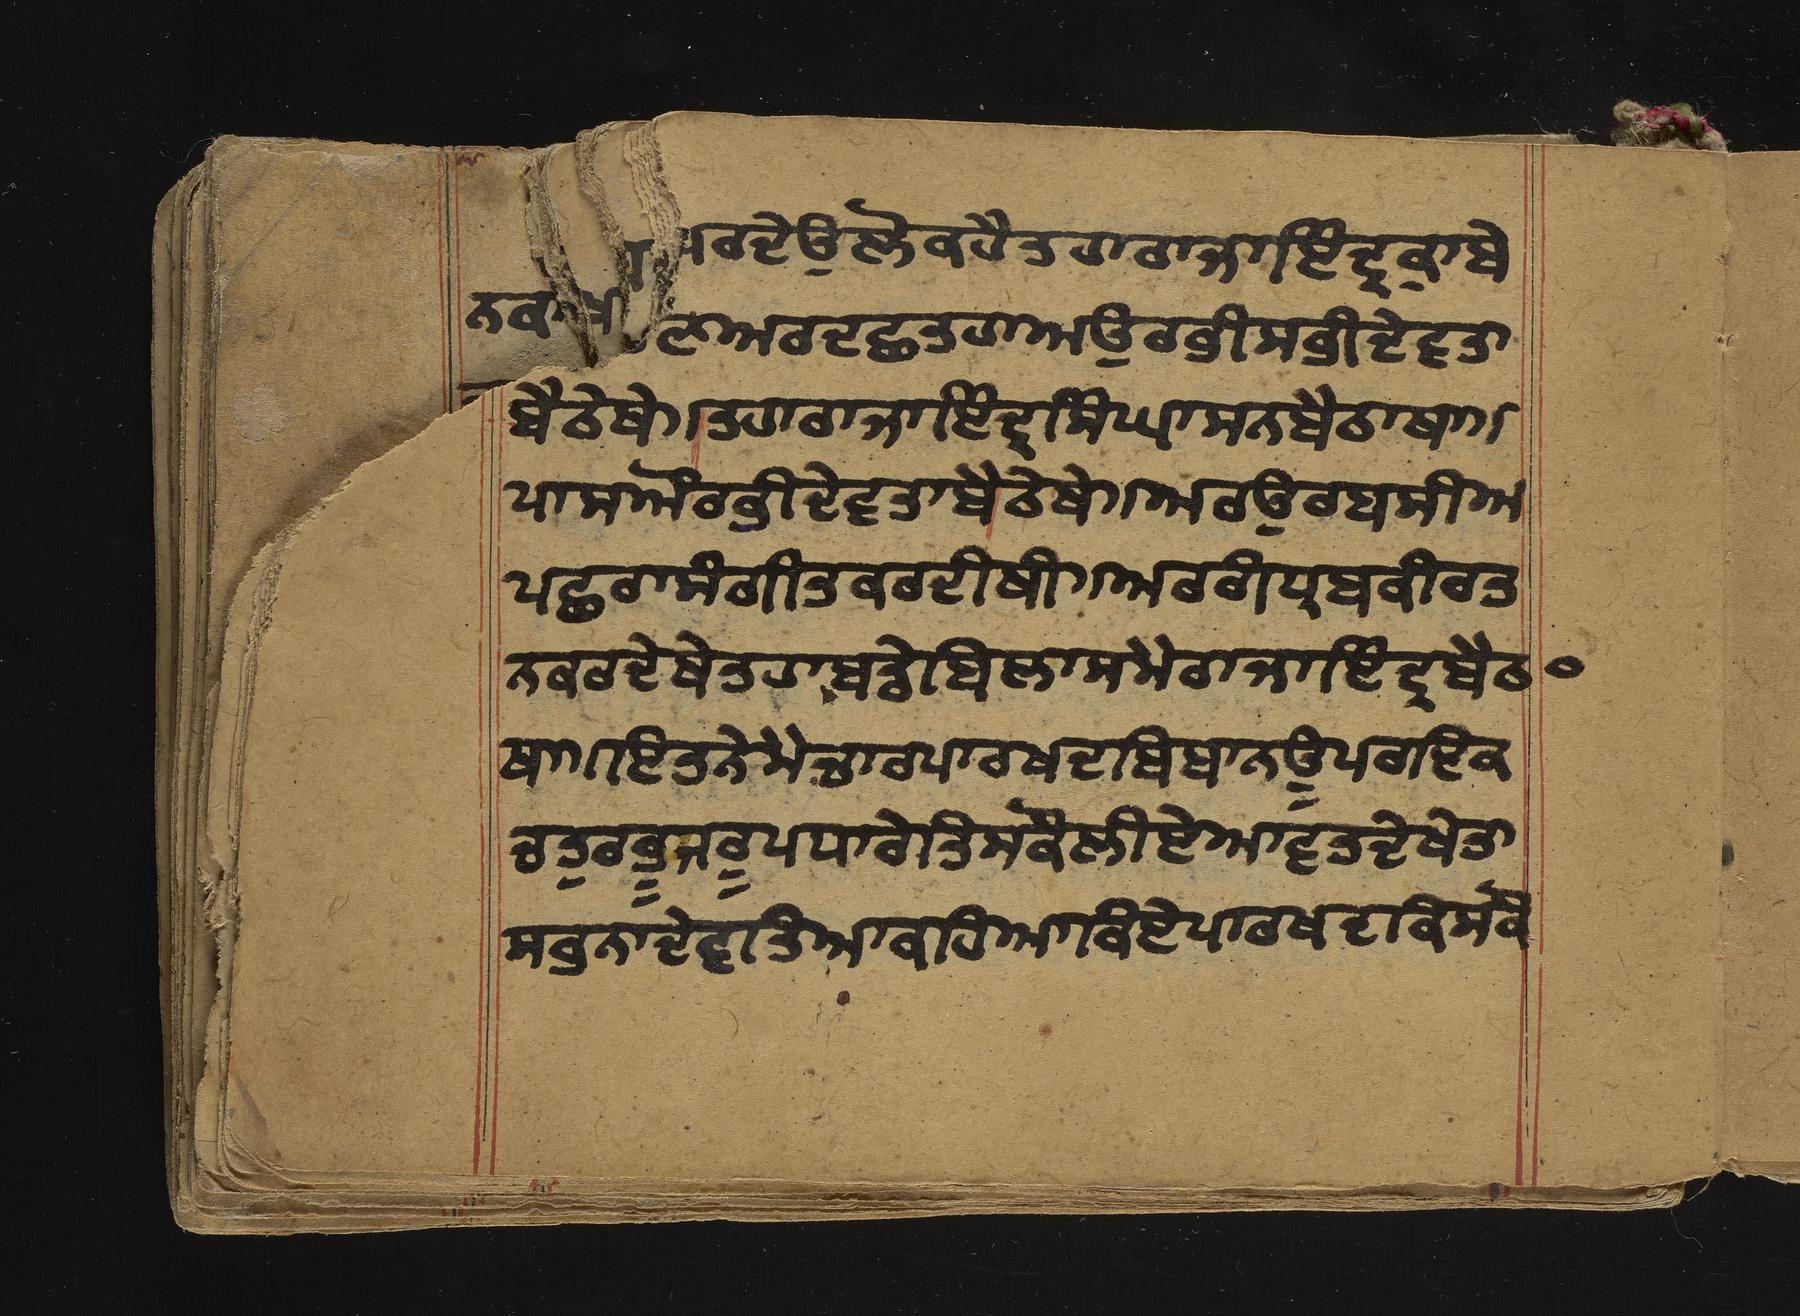 ਅਰਦੇਉਲੋਕਹੈਤਹਾਰਾਜਾਇੰਦ੍ਰਕਾਬੇ
ਅਰਦਛਤਹਾਅਉਰਭੀਸਭੀਦੇਵਤਾ
ਬੈਠੇਥੇ।ਤਹਾਰਾਜਾਇੰਦ੍ਰਸਿੰਘਾਸਨਬੈਠਾਥਾ।
ਪਾਸਔਰਭੀਦੇਵਤਾਬੈਠੇਥੇ।ਅਰਉਰਬਸੀਅ
ਪਛਰਾਸੰਗੀਤਕਰਦੀਥੀ।ਅਰਗੰਧ੍ਰਬਕੀਰਤ
ਨਕਰਦੇਥੇਤਹਾਬਡੇਬਿਲਾਸਮੈਰਾਜਾਇੰਦ੍ਰਬੈਠਾ
ਥਾ।ਇਤਨੇਮੈਚਾਰਪਾਰਖਦਬਿਬਾਨਊਪਰਇਕ
ਚਤੁਰਭੂਜਰੂਪਧਾਰੇਤਿਸਕੌਲੀਏਆਵਤਦੇਖੇਤਾ
ਸਭੁਨਾਦੇਵਤਿਆਕਹਿਆਕਿਏਪਾਰਖਦਕਿਸਕੌ